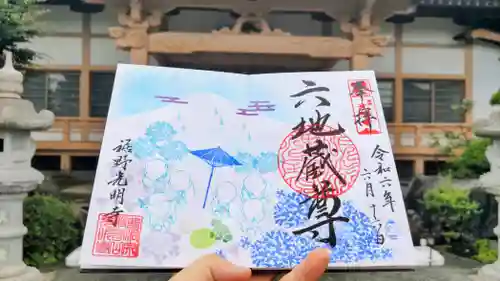 奉拝
六地蔵尊
令和六年
六月十八日
裾野光明寺